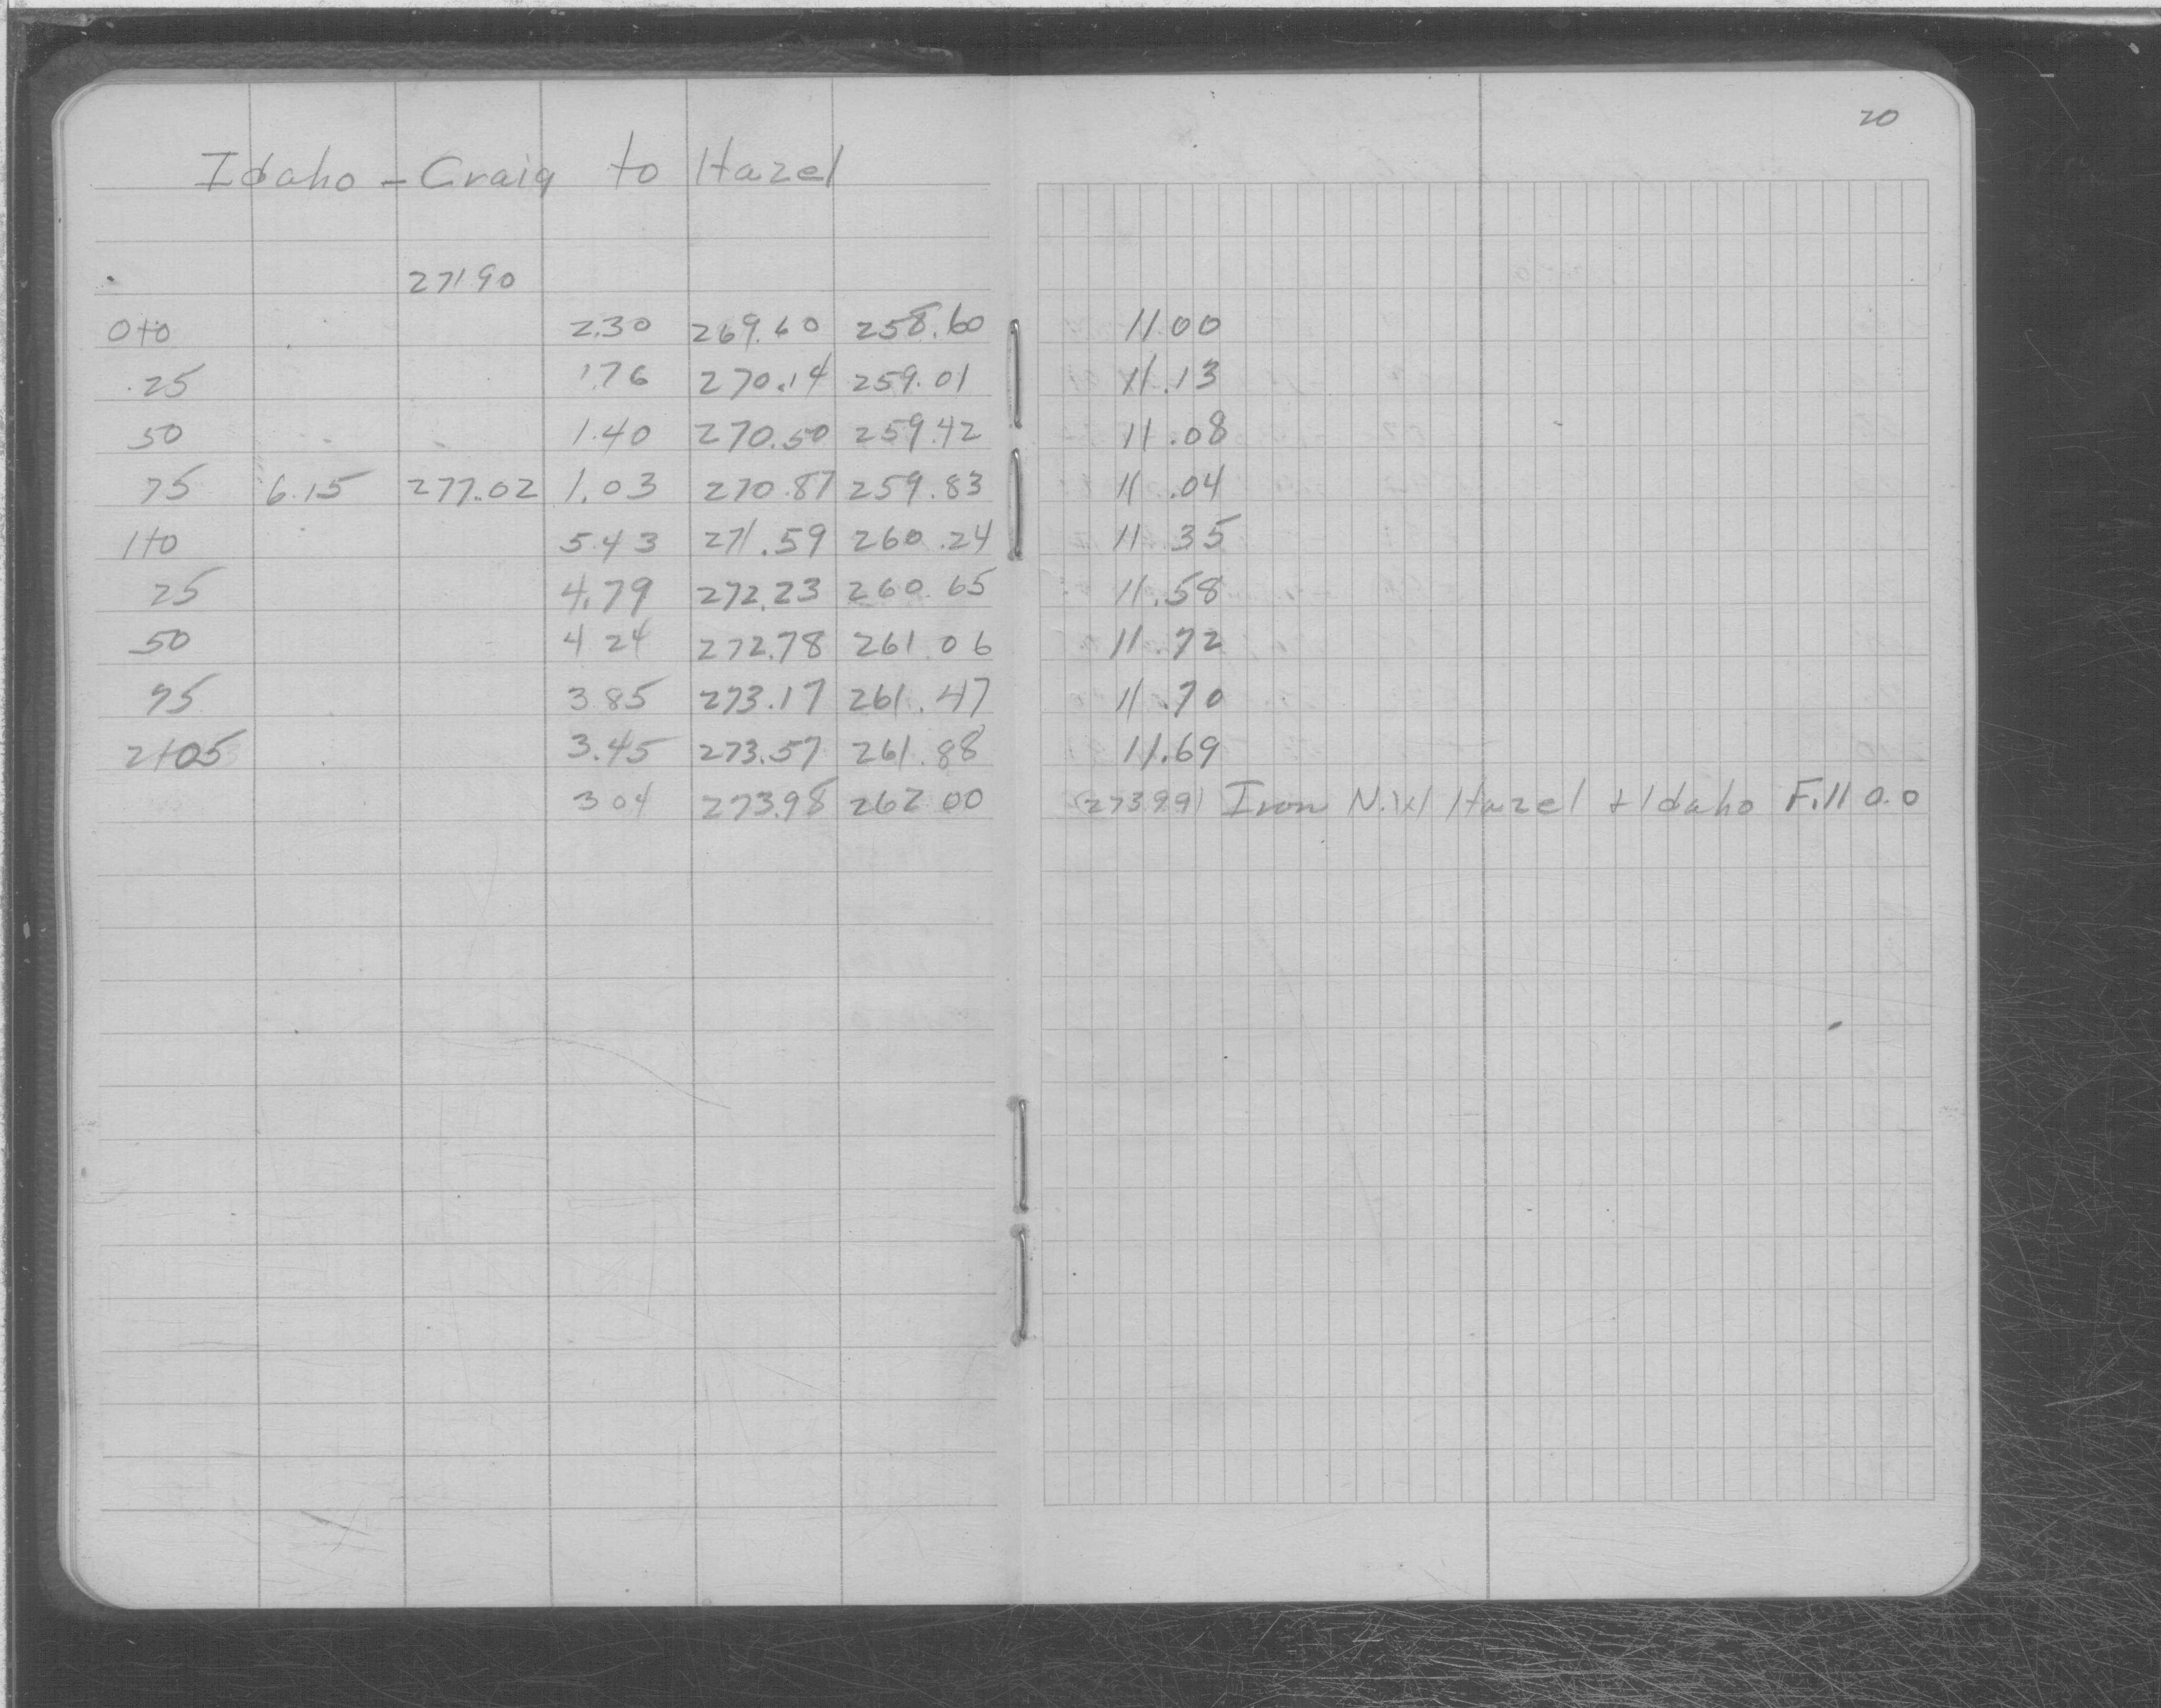 20
Idaho - Craig to Hazel
271 90
0+0 2.30 269.60 258.60 11.00
25 1.76 270.14 259.01 11.13
50 1.40 270.50 259.42 11.08
75 6.15 277.02 1.03 270.87 259.83 11.04
1+0 5.43 271.59 260.24 11 35
25 4.79 272.23 260.65 11.58
50 4 24 272.78 261 06 11.72
75 3 85 273.17 261.47 11.70
2+05 3.45 273.57 261.88 11.69
3 04 273.98 262 00 (273 99) Iron N.W Hazel + Idaho Fill 0.0